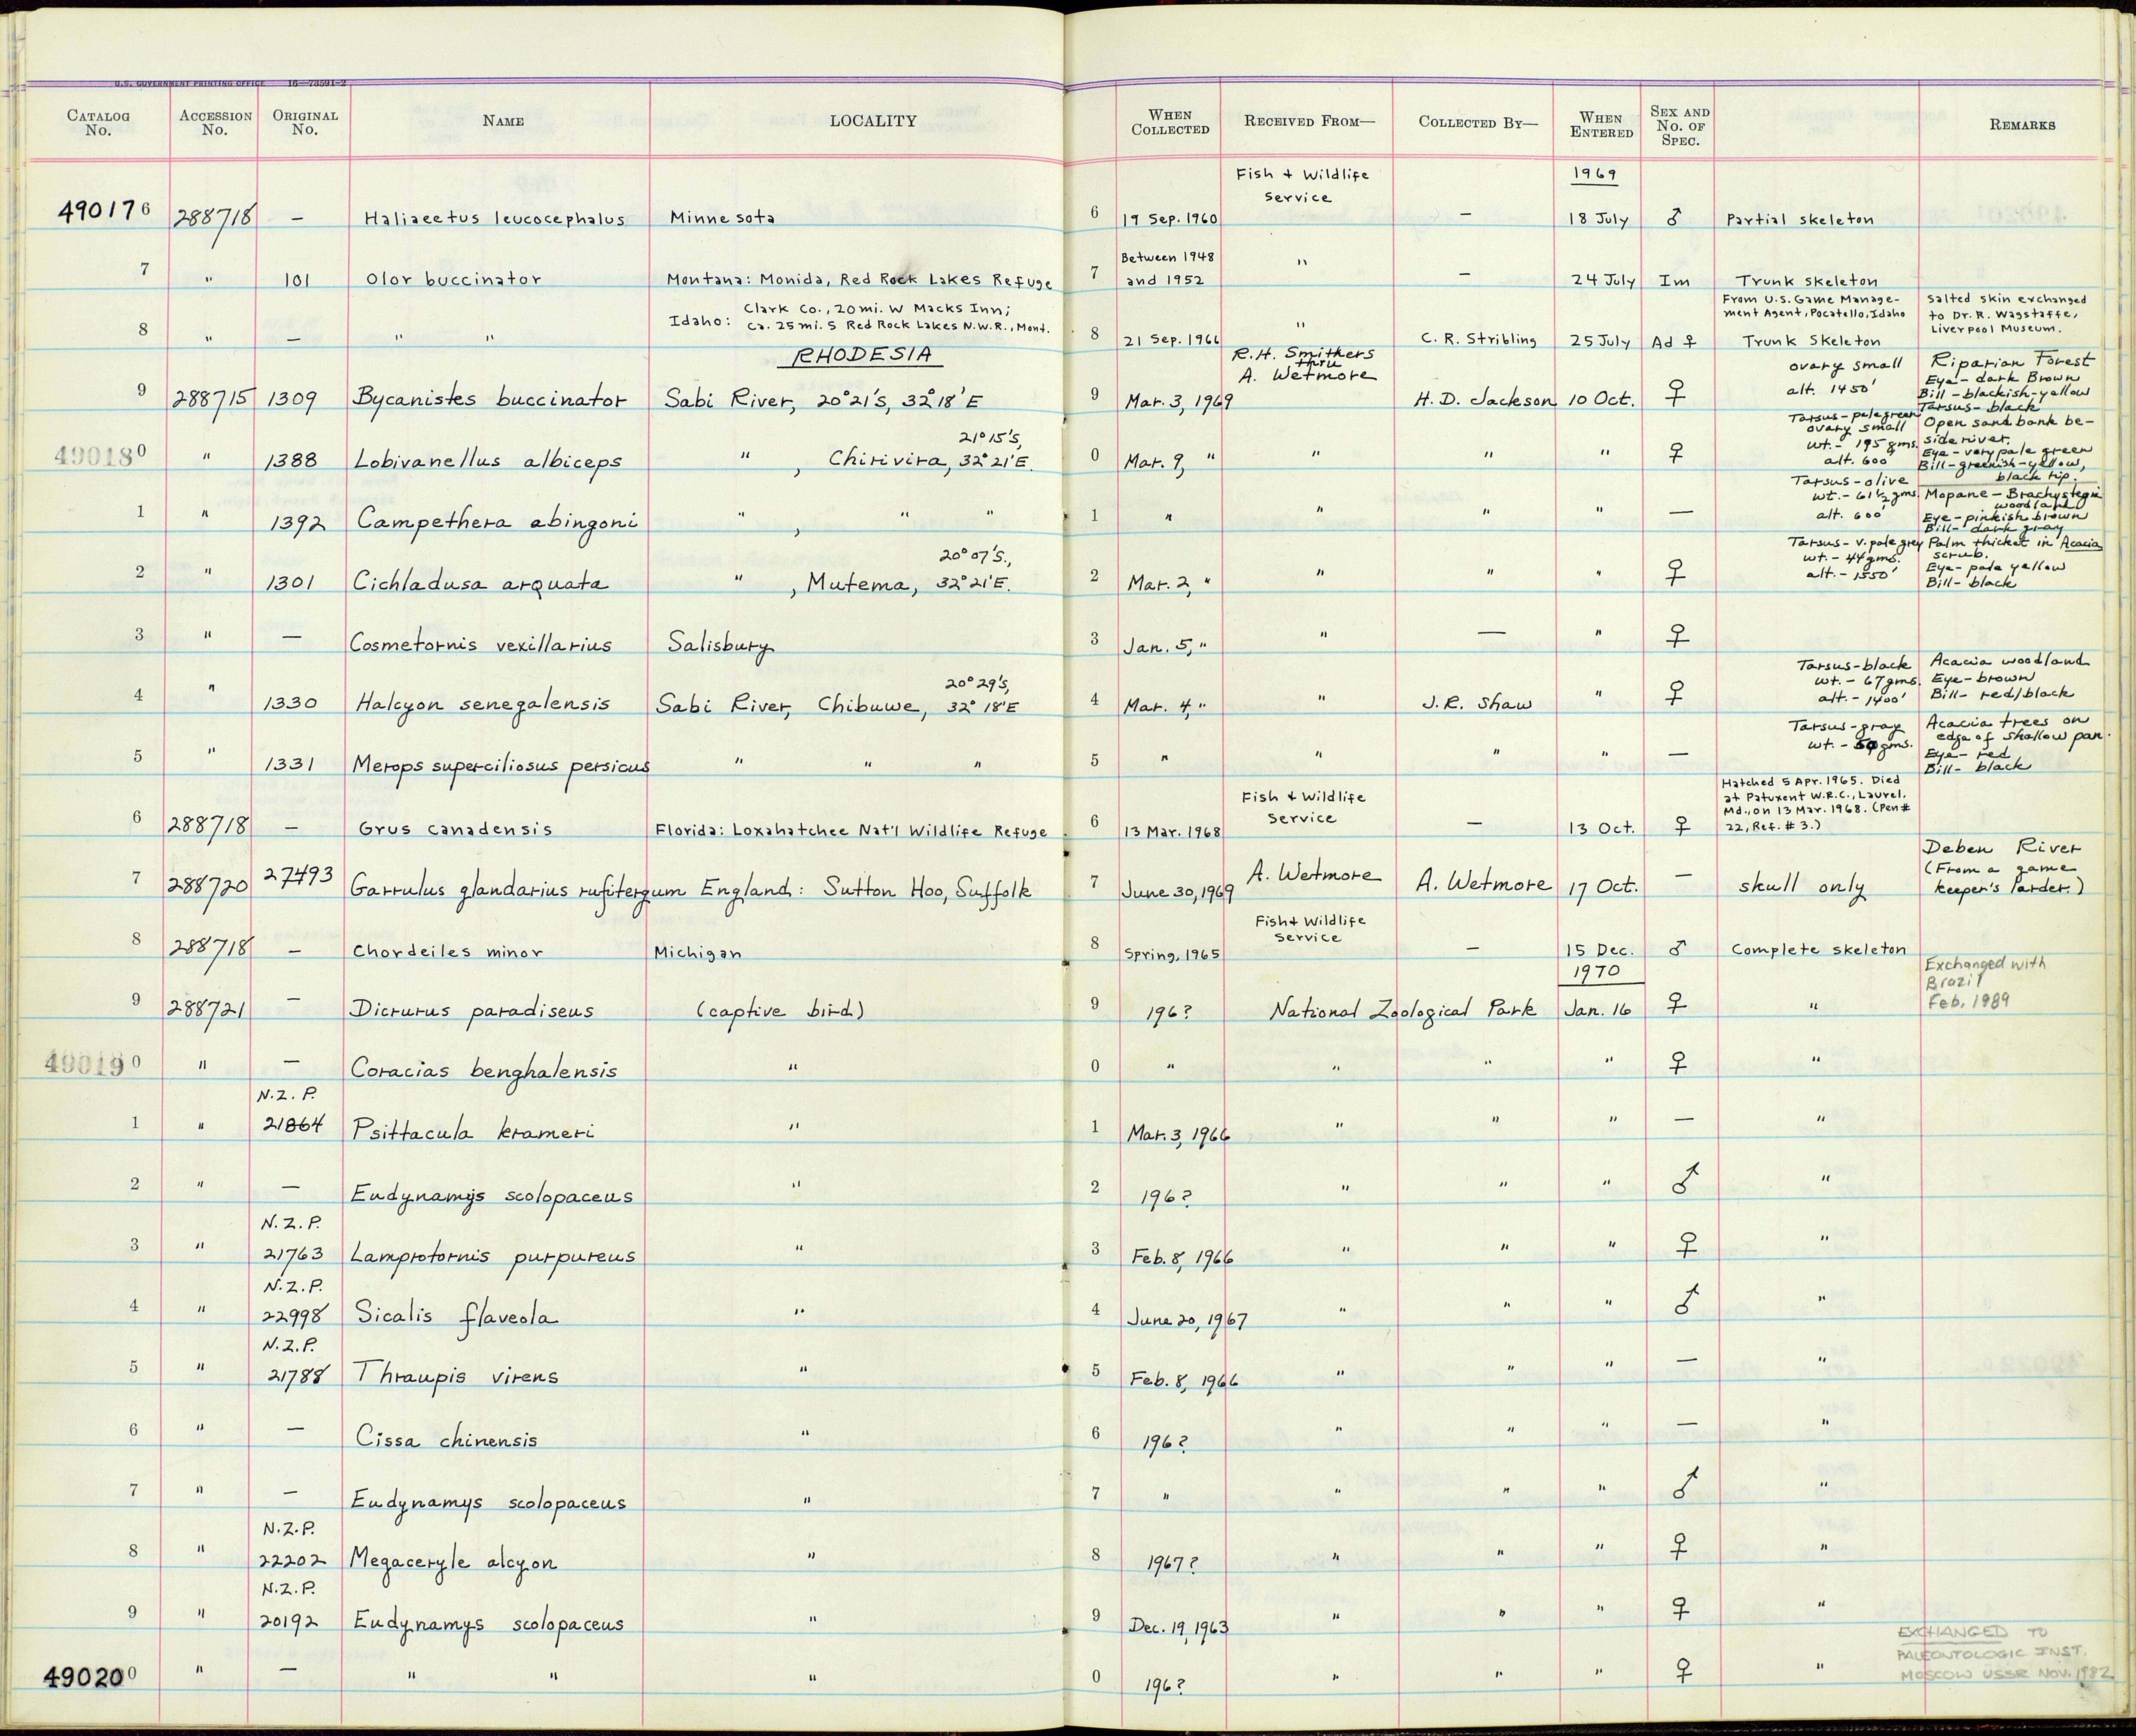 U.S. GOVERNMENT PRINTING OFFICE 16—73591-2
CATALOG No. ACCESSION No. ORIGINAL No. NAME LOCALITY WHEN COLLECTED RECEIVED FROM— COLLECTED BY— WHEN ENTERED SEX AND No. OF SPEC. REMARKS
Fish + Wildlife Service 1969
490176 288718 — Haliaeetus leucocephalus Minnesota 6 19 Sep. 1960 — 18 July ♂ Partial skeleton
7 " 101 Olor buccinator Montana: Monida, Red Rock Lakes Refuge 7 Between 1948 and 1952 " — 24 July Im Trunk skeleton
8 " — " " Idaho: Clark Co., 20 mi. W Macks Inn; ca. 25 mi. S Red Rock Lakes N.W.R., Mont. 8 21 Sep. 1966 " C. R. Stribling 25 July Ad ♀ From U.S. Game Management Agent, Pocatello, Idaho Trunk Skeleton Salted skin exchanged to Dr. R. Wagstaffe, Liverpool Museum.
RHODESIA
9 288715 1309 Bycanistes buccinator Sabi River, 20°21'S, 32°18'E 9 Mar. 3, 1969 R.H. Smithers thru A. Wetmore H. D. Jackson 10 Oct. ♀ ovary small alt. 1450' Riparian Forest Eye - dark Brown Bill - blackish-yellow Tarsus - black
490180 " 1388 Lobivanellus albiceps " , Chirivira, 21°15'S, 32°21'E. 0 Mar. 9, " " " " ♀ Tarsus - pale green ovary small wt. - 195 gms. alt. 600' Open sand bank beside river. Eye - very pale green Bill - greenish-yellow, black tip.
1 " 1392 Campethera abingoni " , " " 1 " " " " — Tarsus - olive wt. - 61½ gms. alt. 600' Mopane - Brachystegia woodland Eye - pinkish brown Bill - dark gray
2 " 1301 Cichladusa arquata " , Mutema, 20°07'S., 32°21'E. 2 Mar. 2, " " " " ♀ Tarsus - v. pale grey wt. - 44 gms. alt. - 1550' Palm thicket in Acacia scrub. Eye - pale yellow Bill - black
3 " — Cosmetornis vexillarius Salisbury 3 Jan. 5, " " — " ♀
4 " 1330 Halcyon senegalensis Sabi River, Chibuwe, 20°29'S, 32°18'E 4 Mar. 4, " " J.R. Shaw " ♀ Tarsus - black wt. - 67 gms. alt. - 1400' Acacia woodland Eye - brown Bill - red/black
5 " 1331 Merops superciliosus persicus " " " 5 " " " " — Tarsus - gray wt. - gms. Acacia trees on edge of shallow pan. Eye - red Bill - black
6 288718 — Grus canadensis Florida: Loxahatchee Nat'l Wildlife Refuge 6 13 Mar. 1968 Fish & Wildlife Service — 13 Oct. ♀ Hatched 5 Apr. 1965. Died at Patuxent W.R.C., Laurel. Md., on 13 Mar. 1968. (Pen # 22, Ref. # 3.)
7 288720 27493 Garrulus glandarius rufitergum England: Sutton Hoo, Suffolk 7 June 30, 1969 A. Wetmore A. Wetmore 17 Oct. — skull only Deben River (From a game keeper's larder.)
8 288718 — Chordeiles minor Michigan 8 Spring, 1965 Fish & Wildlife Service — 15 Dec. ♂ Complete skeleton
1970
9 288721 — Dicrurus paradiseus (captive bird) 9 196? National Zoological Park Jan. 16 ♀ " Exchanged with Brazil Feb. 1989
490190 " — Coracias benghalensis " 0 " " " " ♀ "
1 " N.Z.P. 21864 Psittacula krameri " 1 Mar. 3, 1966 " " " — "
2 " — Eudynamys scolopaceus " 2 196? " " " ♂ "
3 " N.Z.P. 21763 Lamprotornis purpureus " 3 Feb. 8, 1966 " " " ♀ "
4 " N.Z.P. 22998 Sicalis flaveola " 4 June 20, 1967 " " " ♂ "
5 " N.Z.P. 21788 Thraupis virens " 5 Feb. 8, 1966 " " " — "
6 " — Cissa chinensis " 6 196? " " " — "
7 " — Eudynamys scolopaceus " 7 " " " " ♂ "
8 " N.Z.P. 22202 Megaceryle alcyon " 8 1967? " " " ♀ "
9 " N.Z.P. 20192 Eudynamys scolopaceus " 9 Dec. 19, 1963 " " " ♀ "
490200 " — " " " 0 196? " " " ♀ " EXCHANGED TO PALEONTOLOGIC INST. MOSCOW USSR NOV. 1982